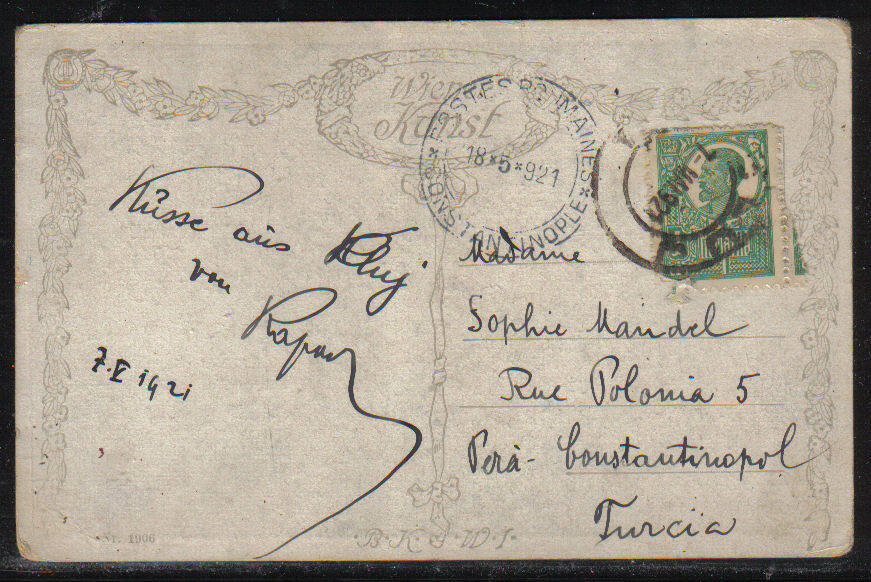 Wien
Kunst
POSTES ROUMAINES * CONSTANTINOPLE *
18*5*921
Küsse aus
Kluj
von
7.V 1921
Madame
Sophie Mandel
Rue Polonia 5
Pera- Constantinopol
Turcia
Nr. 1906
B.K.W.I.